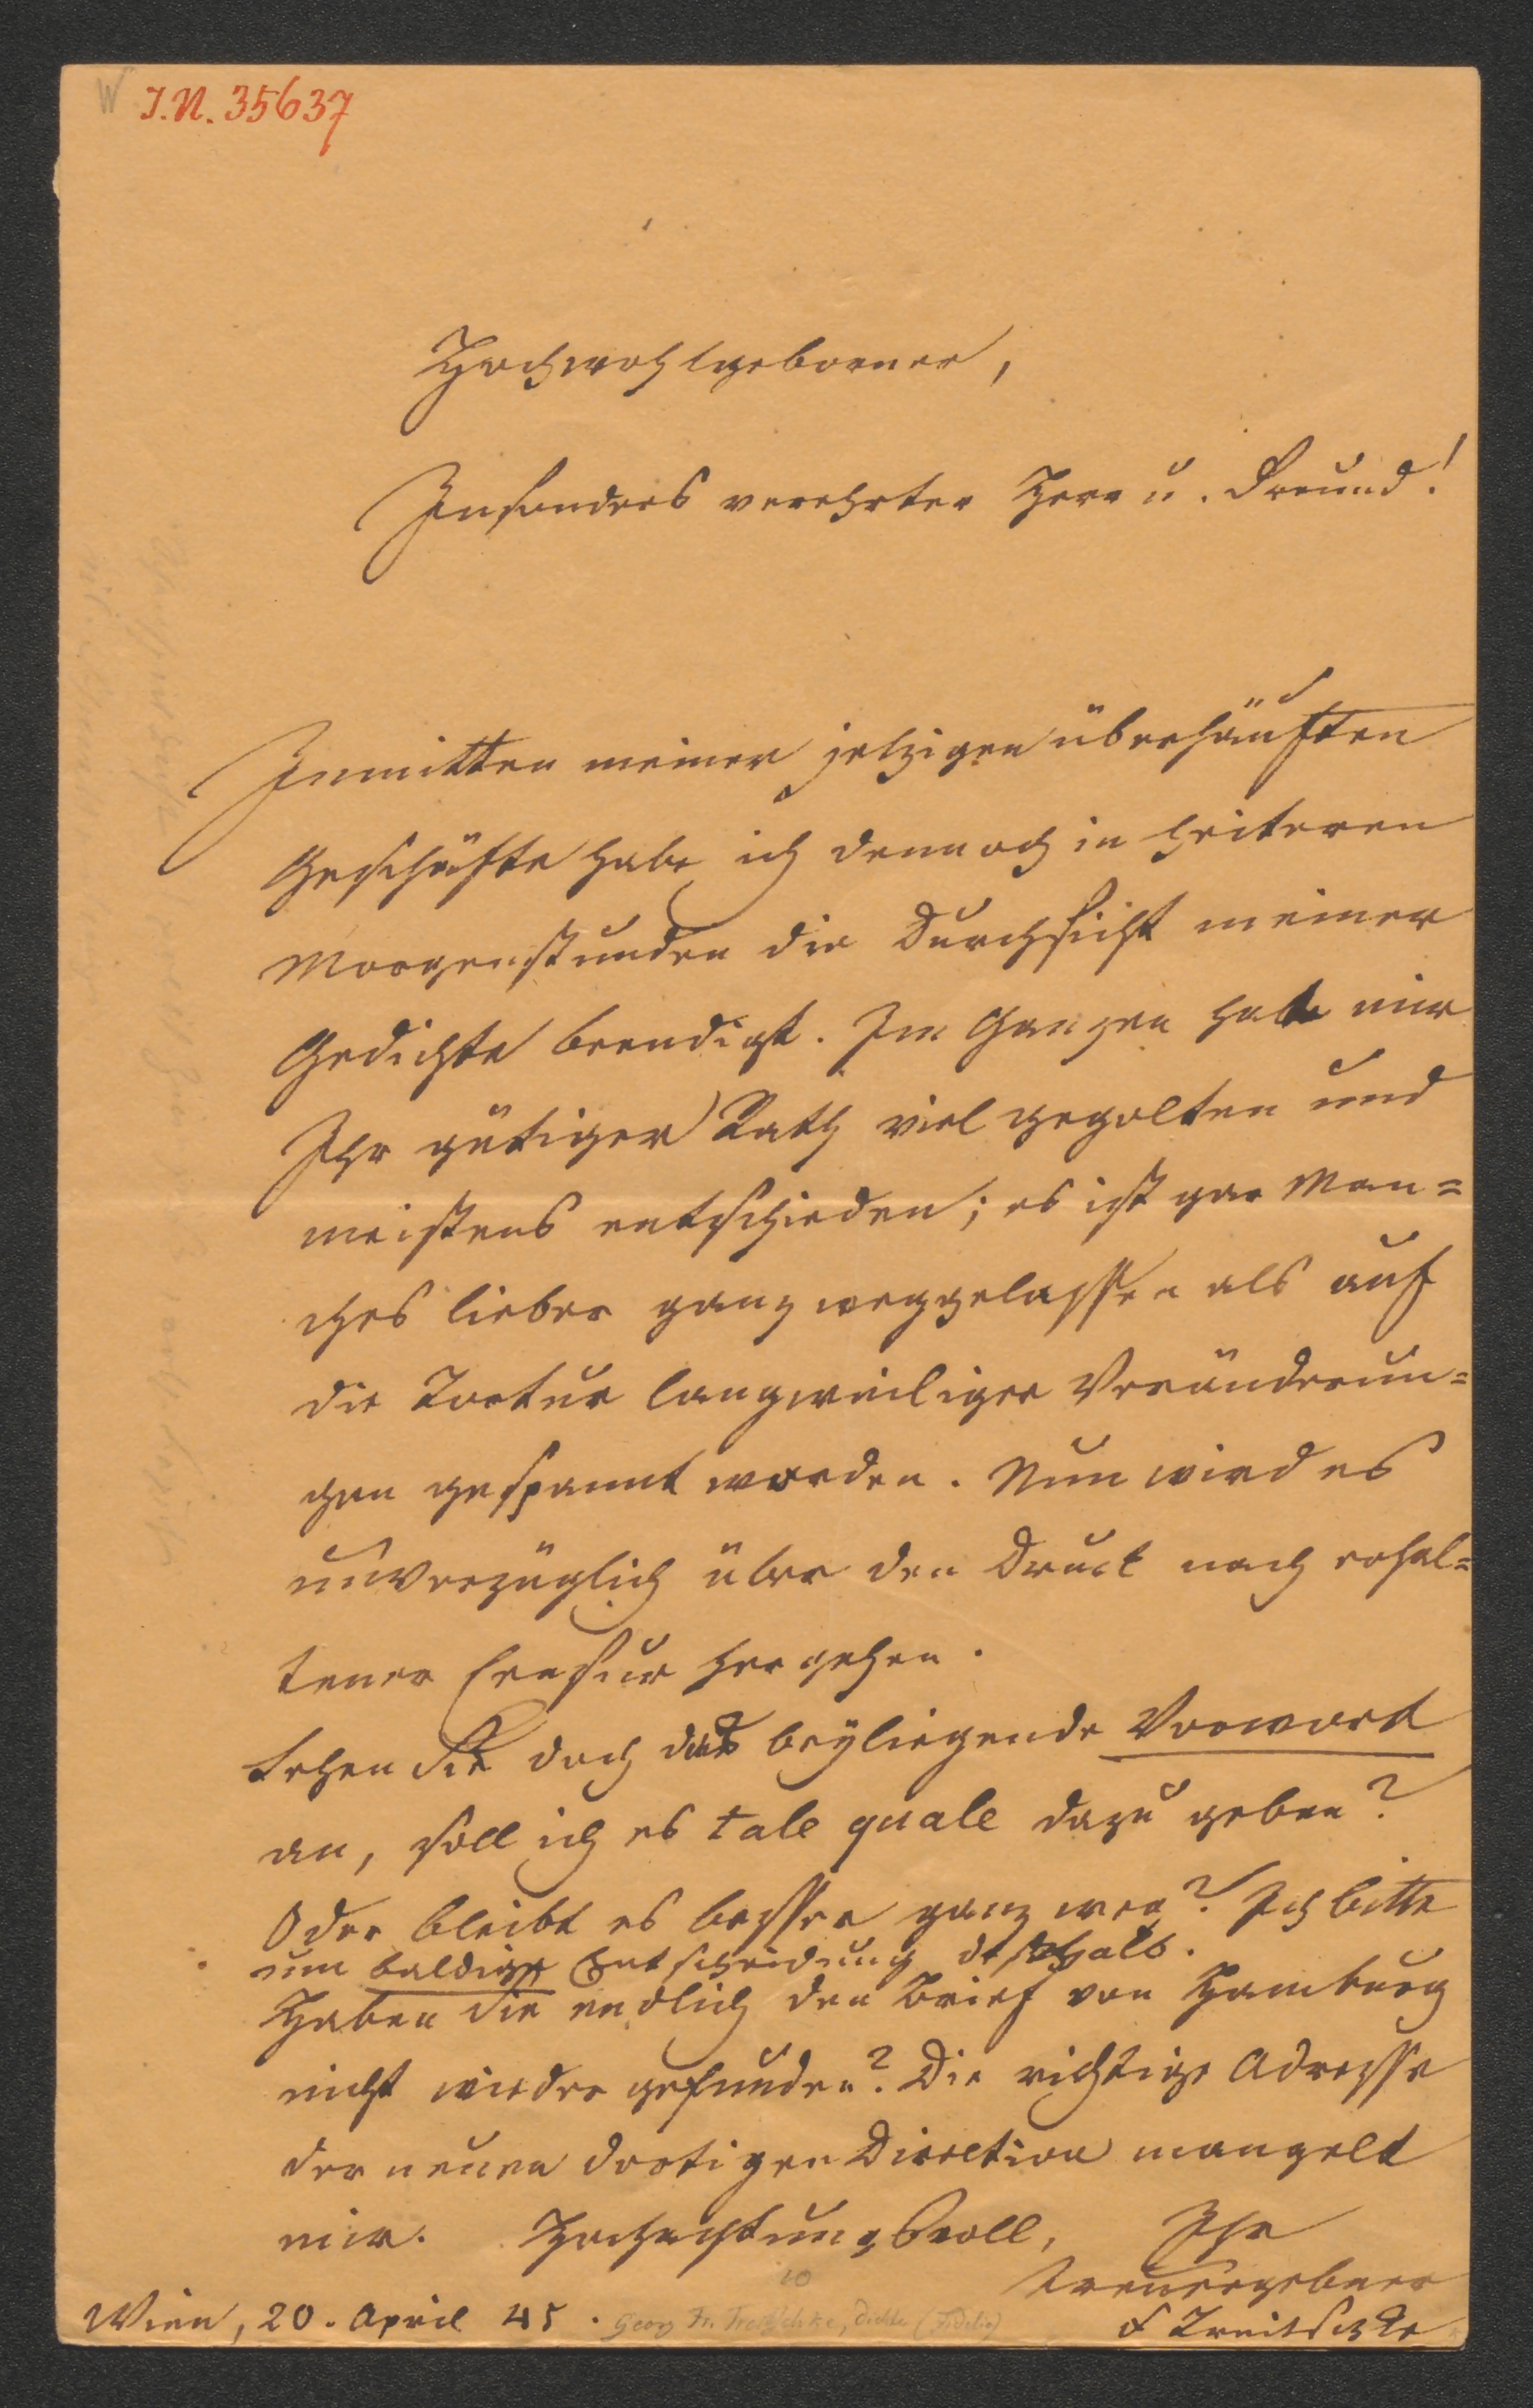 W
I.N. 35637
Hochwohlgeborner,
Insonders verehrter Herr u. Freund!
Inmitten meiner jetzigen überhäuften
Geschäfte habe ich dennoch in heiteren
Morgenstunden die Durchsicht meiner
Gedichte beendigt. Im Ganzen hat mir
Ihr gütiger Rath viel gegolten und
meistens entschieden; es ist gar Man=
ches lieber ganz weggelassen als auf
die Tortur langweiliger Veränderun=
gen gespannt worden. Nun wird es
unverzüglich über den Druck nach erhal=
tener Censur hergehen.
Sehen Sie doch das beyliegende Vorwort
an, soll ich es tale quale dazu geben?
Oder bleibt es besser ganz weg? Ich bitte
um baldige Entscheidung deßhalb.
Haben Sie endlich den Brief von Hamburg
nicht wieder gefunden? Die richtige Adresse
der neuen dortigen Direction mangelt
mir. Hochachtungsvoll, Ihr
treuergebner
F Treitschke
Wien, 20. April 45.
Georg Fr. Treitschke, Dichter (Fidelio)